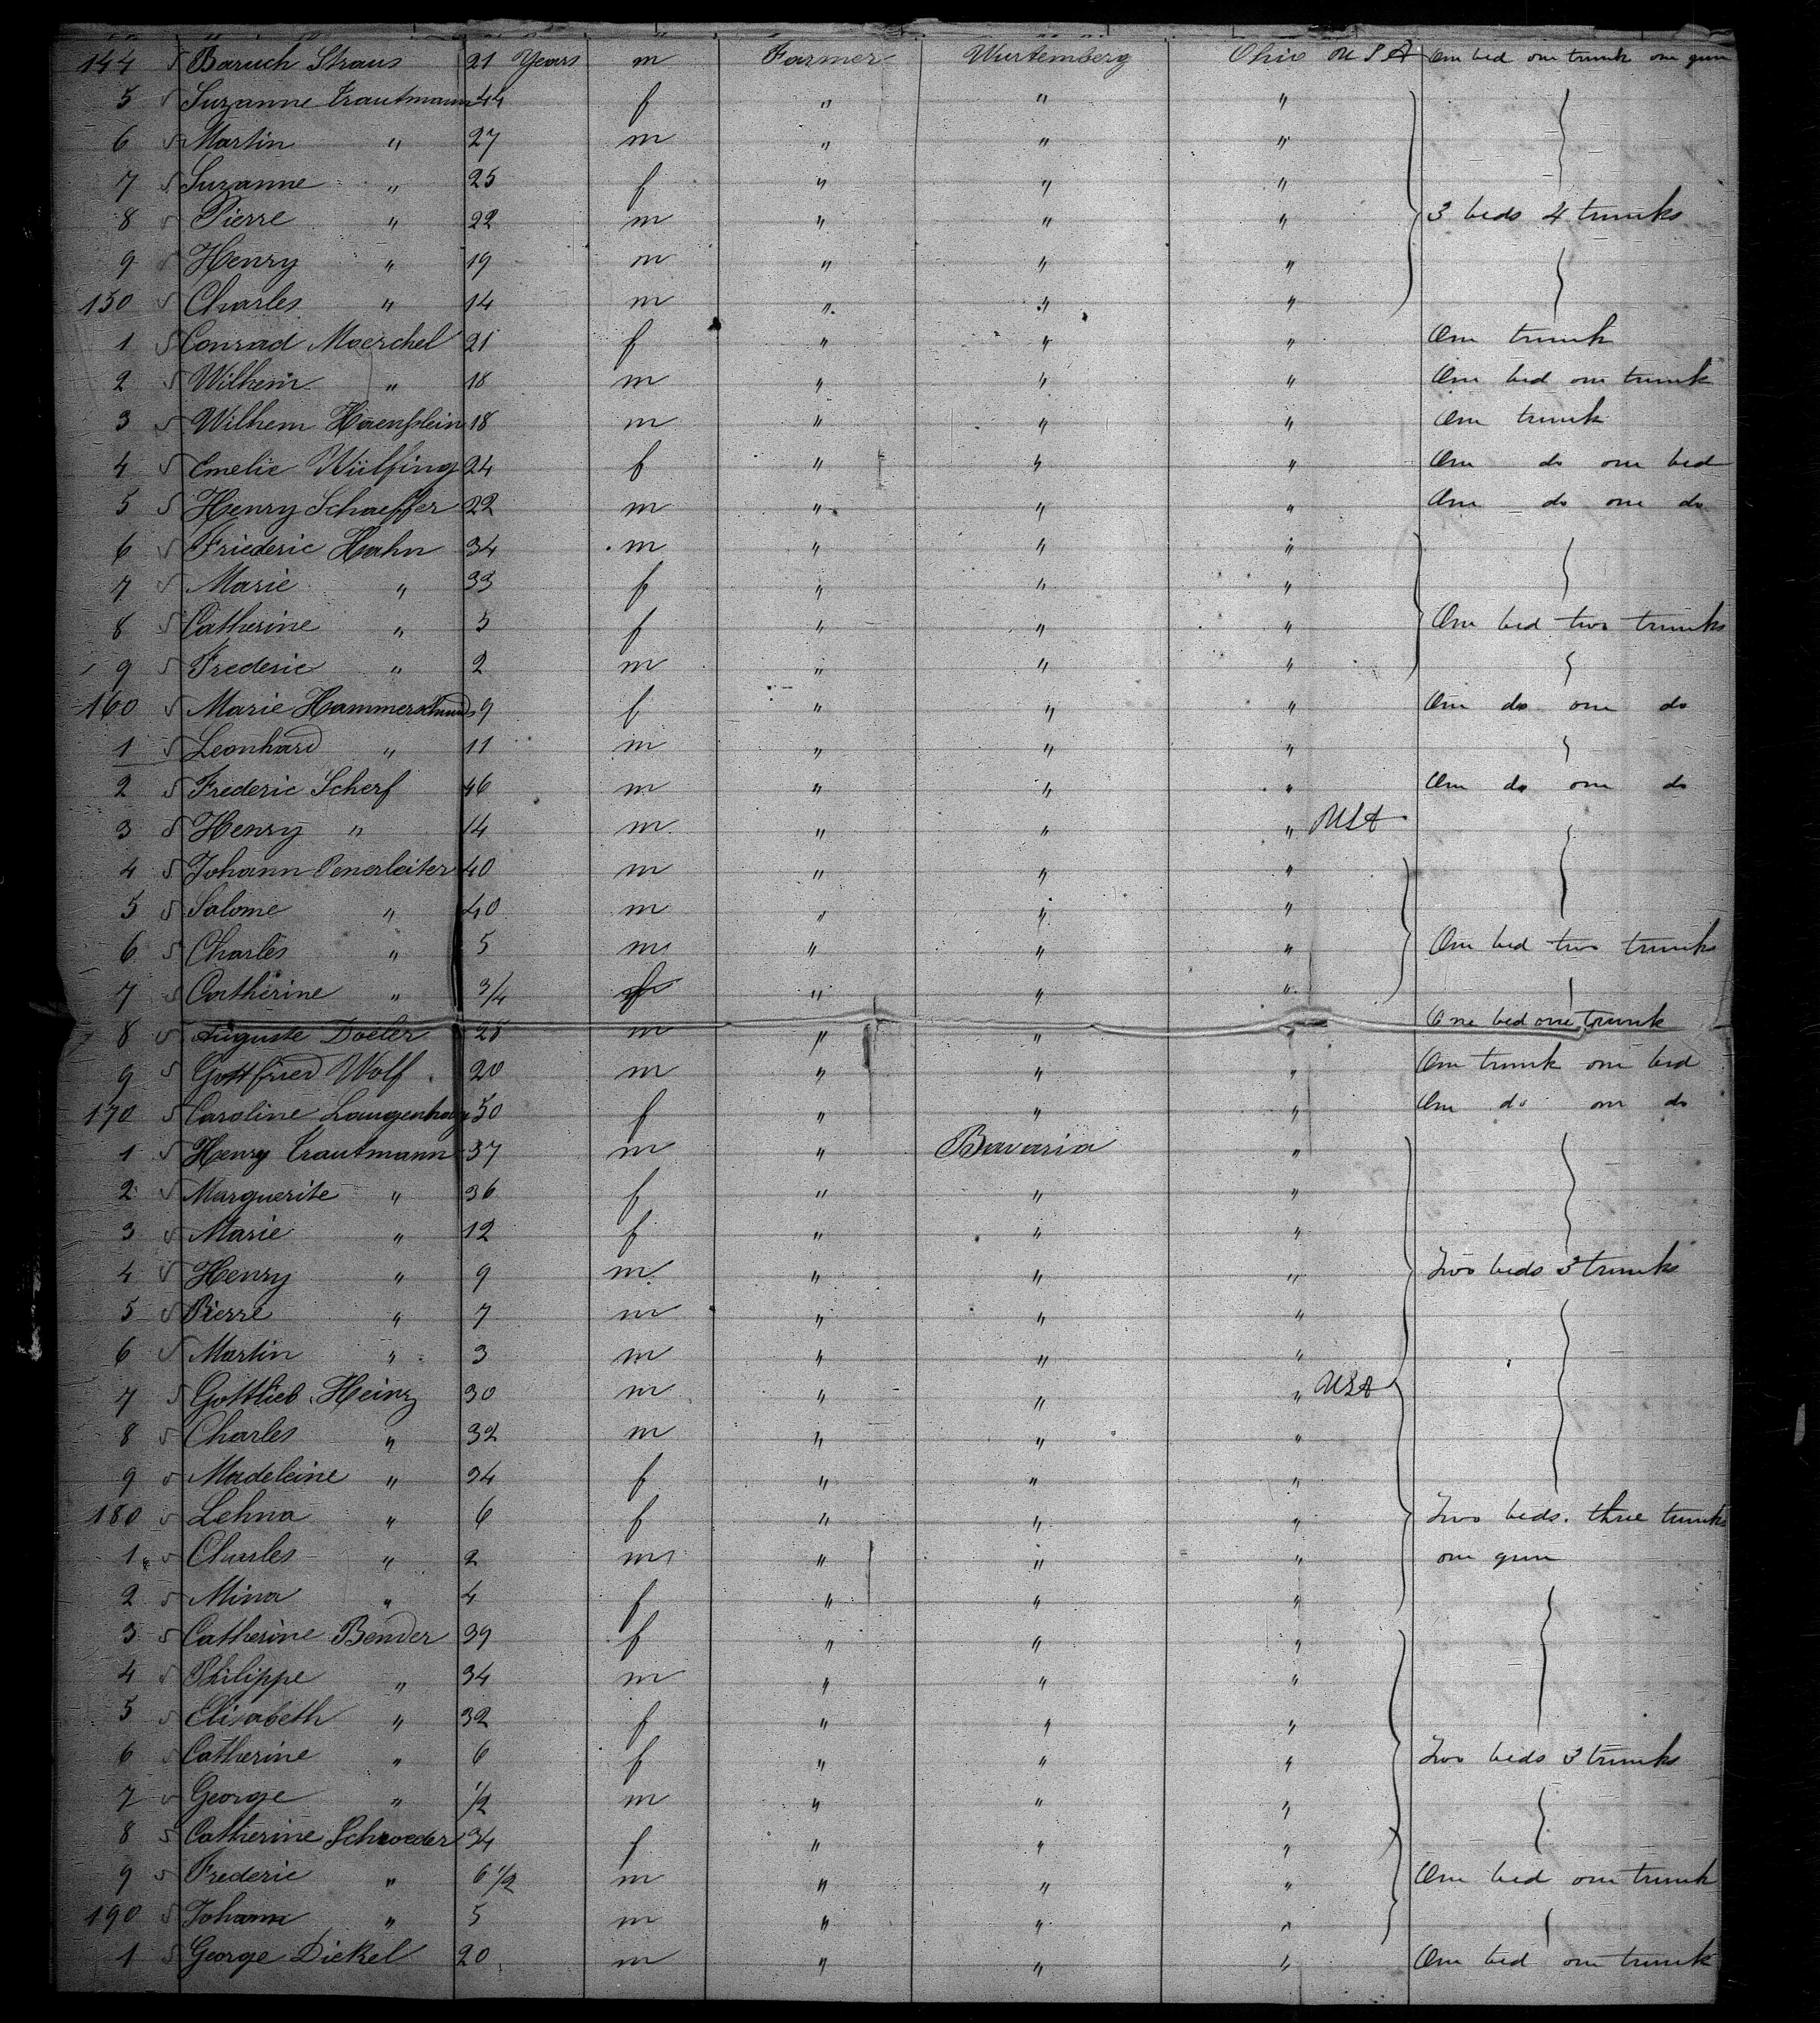 144 Baruch Straus 21 Years m Farmer Wurtemberg Ohio U S A One bed one trunk one gun
5 Suzanne Trautmann 44 f " " "
6 Martin " 27 m " " "
7 Suzanne " 25 f " " "
8 Pierre " 22 m " " " 3 beds 4 trunks
9 Henry " 19 m " " "
150 Charles " 14 m " " "
1 Conrad Moerchel 21 f " " " One trunk
2 Wilhem " 18 m " " " One bed one trunk
3 Wilhem 18 m " " " One trunk
4 Emelie Wülfing 24 f " " " One do one bed
5 Henry Schaeffer 22 m " " " One do one do
6 Friederic Hahn 34 m " " "
7 Marie " 33 f " " "
8 Catherine " 5 f " " " One bed two trunks
9 Frederic " 2 m " " "
160 Marie Hammerschmids 9 f " " " One do one do
1 Leonhard " 11 m " " "
2 Frederic Scherf 46 m " " " One do one do
3 Henry " 14 m " " " USA
4 Johann 40 m " " "
5 Salome " 40 m " " "
6 Charles " 5 m " " " One bed two trunks
7 Catherine " 3/4 f " " "
8 Auguste Doeler 28 m " " One bed one trunk
9 Gottfried Wolf 20 m " " " One trunk one bed
170 Caroline 50 f " " " One do one do
1 Henry Trautmann 37 m " Bavaria "
2 Marguerite " 36 f " " "
3 Marie " 12 f " " "
4 Henry " 9 m " " " Two beds 3 trunks
5 Pierre " 7 m " " "
6 Martin " 3 m " " "
7 Gottlieb Heinz 30 m " " " USA
8 Charles " 32 m " " "
9 Madeleine " 34 f " " "
180 Lehna " 6 f " " " Two beds three trunks
1 Charles " 2 m " " " one gun
2 Mina " 4 f " " "
3 Catherine Bender 39 f " " "
4 Philippe " 34 m " " "
5 Elisabeth " 32 f " " "
6 Catherine " 6 f " " " Two beds 3 trunks
7 George " 1/2 m " " "
8 Catherine Schroeder 34 f " " "
9 Frederic " 6 1/2 m " " " One bed one trunk
190 Johann " 5 m " " "
1 George Dickel 20 m " " " One bed one trunk